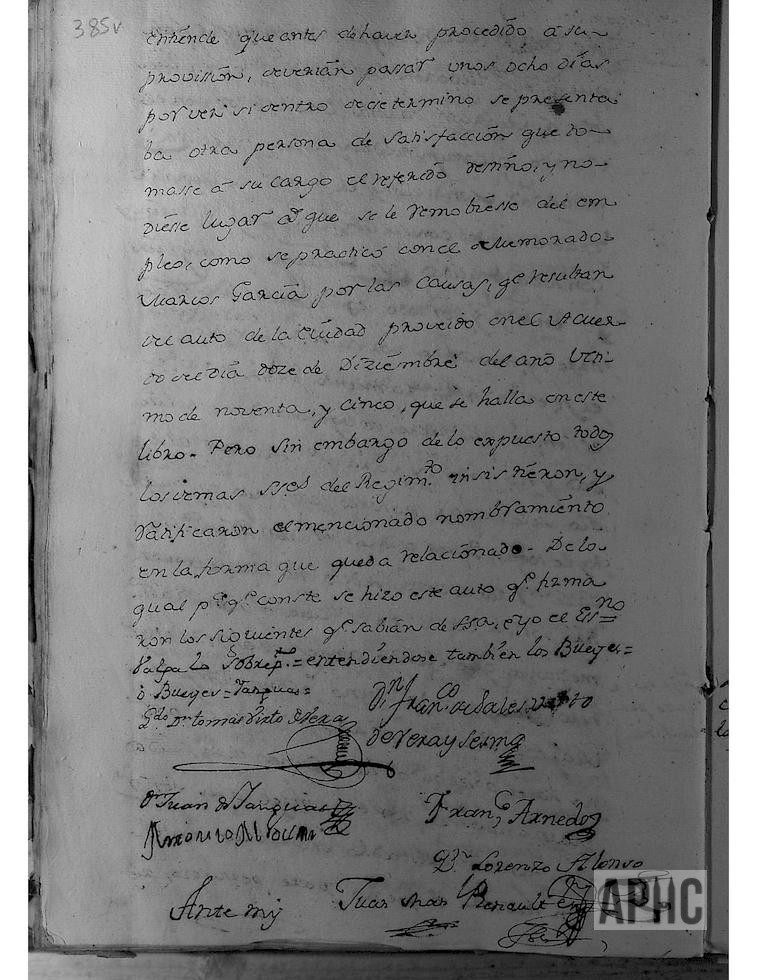 385v
entiende que antes de haver procedido à su
provissión, deverían passar unos ocho días
por ver si dentro de este termino se presenta
ba otra persona de satisfacción que to-
masse à su cargo el referido destino, y no
diesse lugar à que se le removiesse del em
pleo, como se practicó con el
Marcos García por las causas, qe. resultan
del auto de la Ciudad proveido en el Acuer-
do del día doze de Diziembre del año ulti-
mo de noventa, y cinco, que se halla en este
libro. Pero sin embargo de lo expuesto todos
los demas SSes. del Regimto. insistieron, y
ratificaron el mencionado nombramiento
en la forma que queda relacionado. De lo
qual pa. qe. conste se hizo este auto qe. firma
ron los siguientes qe. sabían de SSa., e yo el Essno
Valga lo Sobrepto. = entendiendose tambien los Bueyes =
ô Bueyes = Tanguas =
Dn. Franco. de Sales
Ldo. Dn. Tomas Virto de Vera
de Vera y
Dn. Juan de Tanguas
Franco. Arnedo
Antonio
Dn. Lorenzo Alonso
Ante mi
Juan Renault
APHC